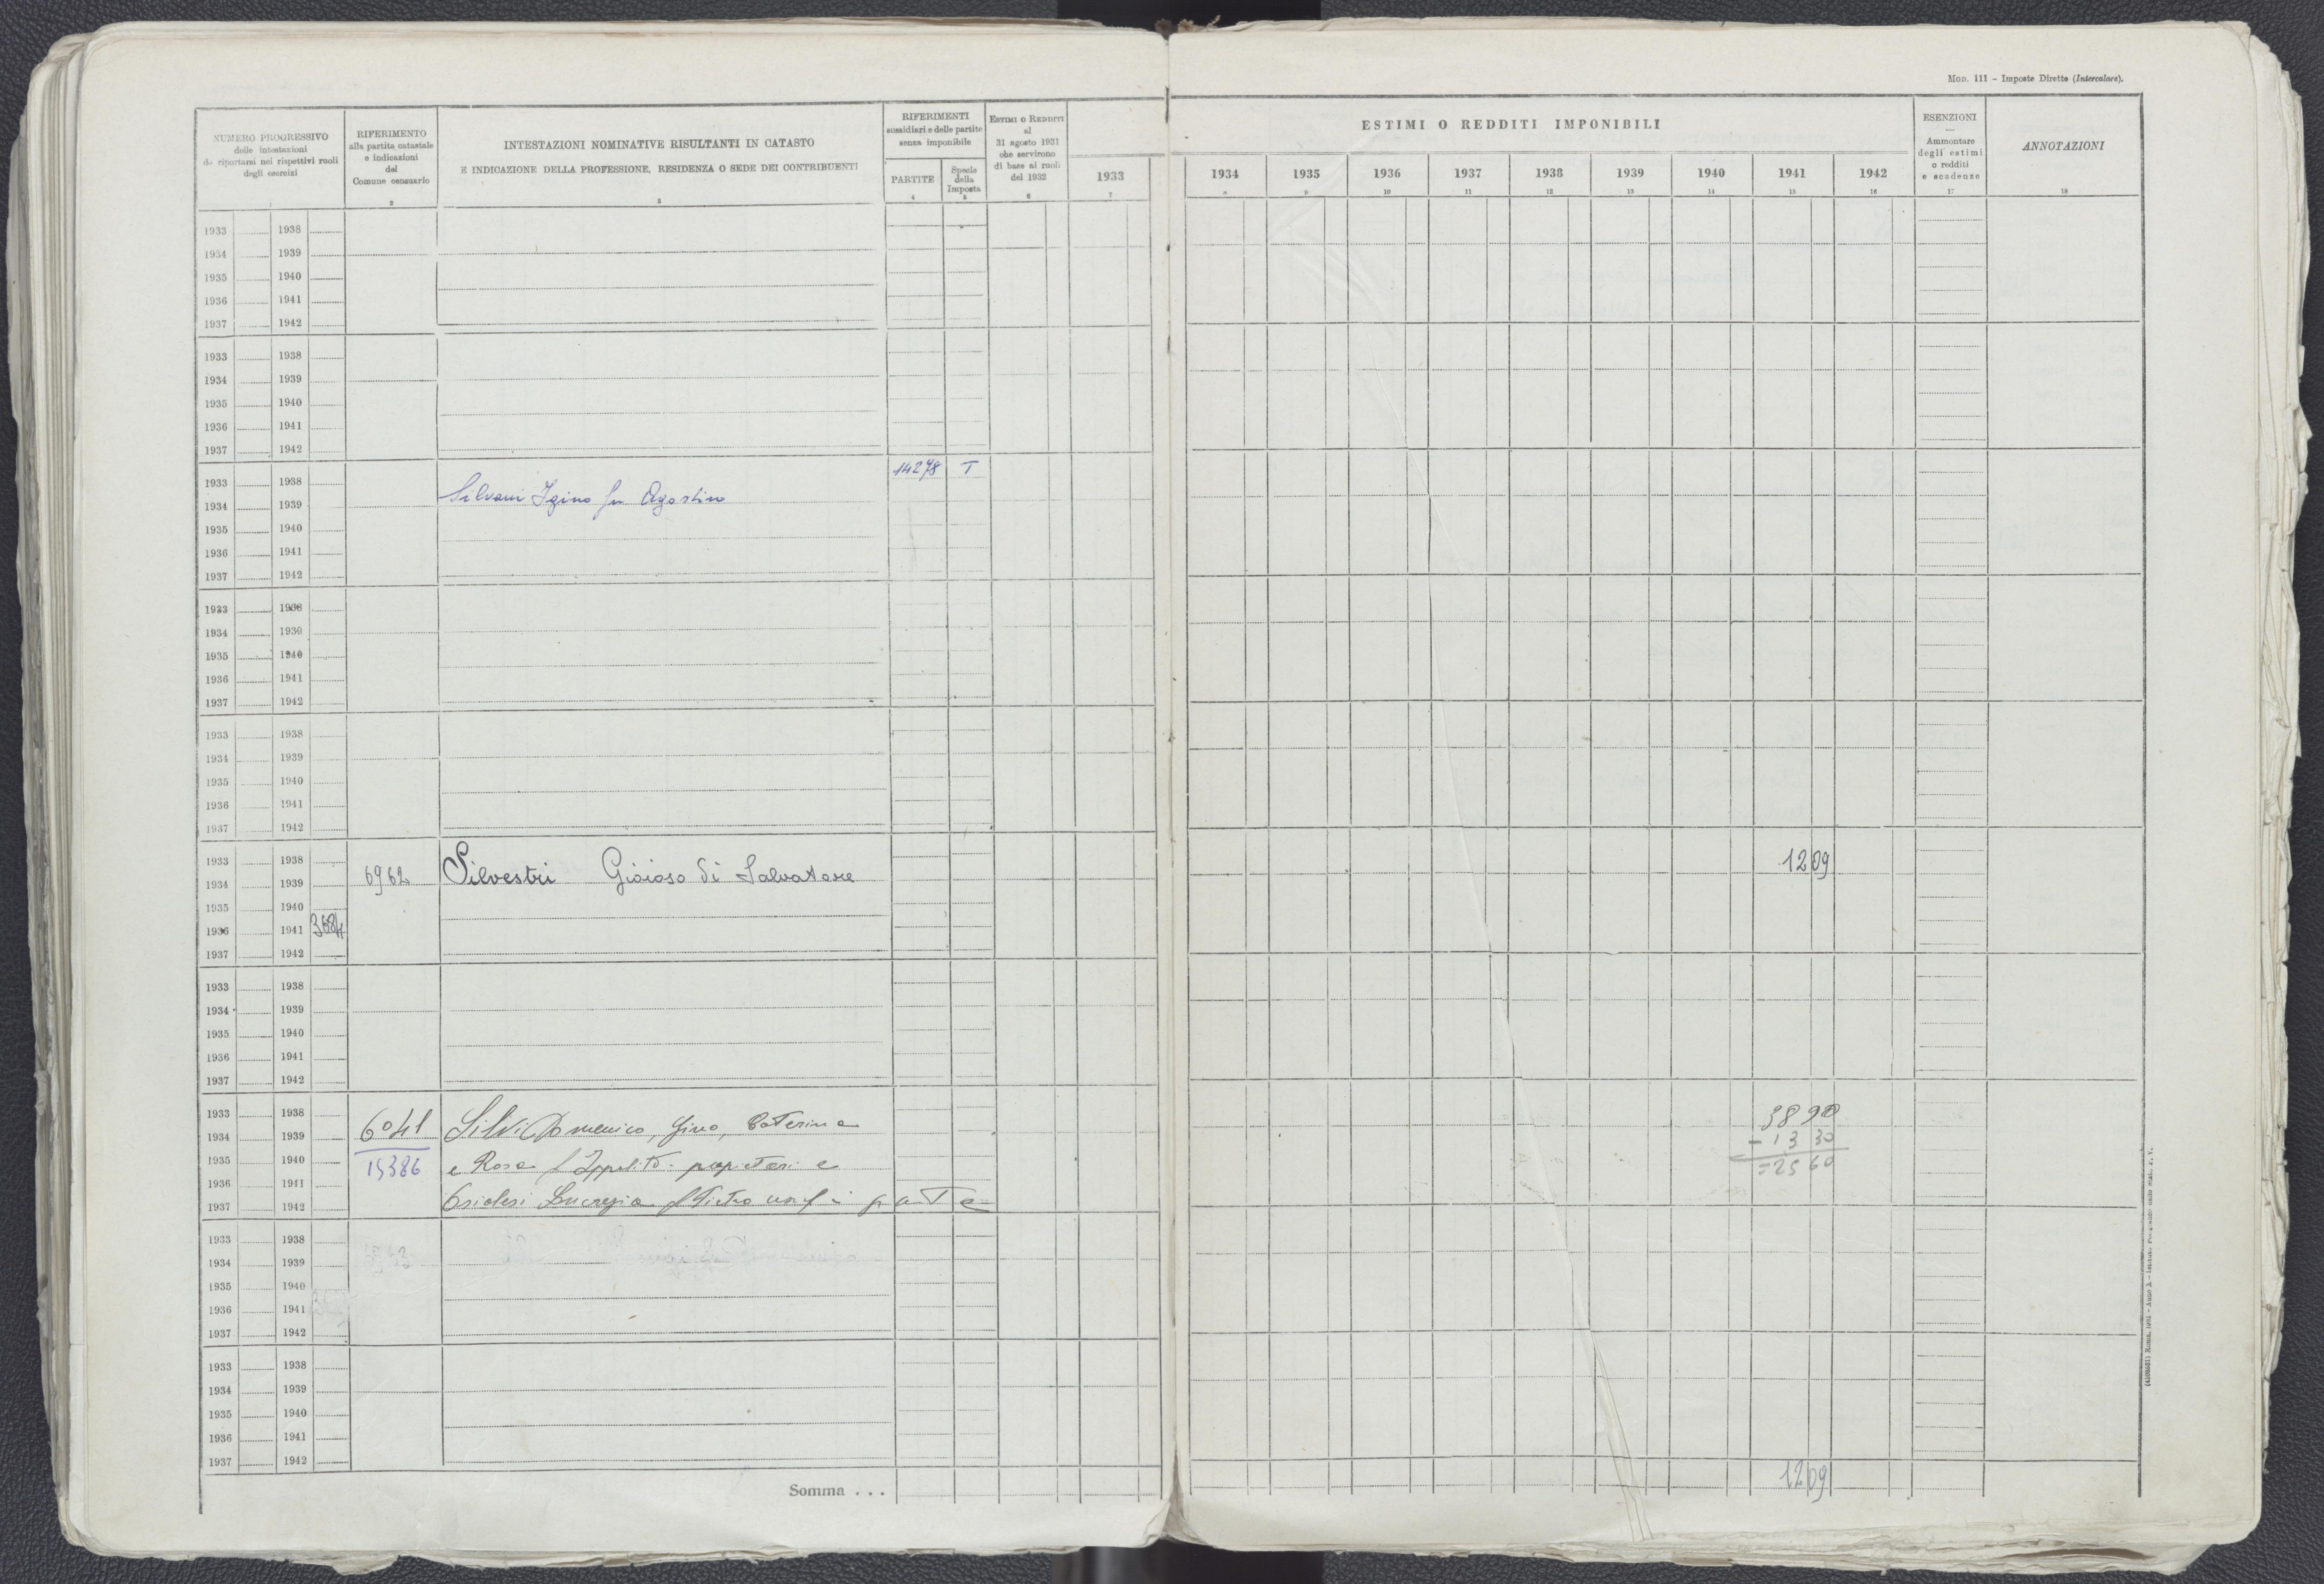 Mod. 111 – Imposte Dirette (Intercalare).
NUMERO PROGRESSIVO
delle intestazioni
da riportarsi nei rispettivi ruoli
degli esercizi
1
RIFERIMENTO
alla partita catastale
e indicazioni
del
Comune censuario
2
INTESTAZIONI NOMINATIVE RISULTANTI IN CATASTO
E INDICAZIONE DELLA PROFESSIONE, RESIDENZA O SEDE DEI CONTRIBUENTI
3
RIFERIMENTI
sussidiari e delle partite
senza imponibile
PARTITE
4
Specie
della
Imposta
5
Estimi o Redditi
al
31 agosto 1931
che servirono
di base ai ruoli
del 1932
6
1933
7
ESTIMI O REDDITI IMPONIBILI
1934 1935 1936 1937 1938 1939 1940 1941 1942
8 9 10 11 12 13 14 15 16
ESENZIONI
—
Ammontare
degli estimi
o redditi
e scadenze
17
ANNOTAZIONI
18
1933 1938
1934 1939
1935 1940
1936 1941
1937 1942
1933 1938
1934 1939
1935 1940
1936 1941
1937 1942
14278 T
1933 1938
1934 1939 Silvani Igino fu Agostino
1935 1940
1936 1941
1937 1942
1933 1938
1934 1939
1935 1940
1936 1941
1937 1942
1933 1938
1934 1939
1935 1940
1936 1941
1937 1942
1933 1938
1934 1939 6962 Silvestri Gioioso di Salvatore 1209
1935 1940
1936 1941 3684
1937 1942
1933 1938
1934 1939
1935 1940
1936 1941
1937 1942
1933 1938 3890
1934 1939 6041 Silvi Domenico, Gino, Caterina - 13 30
1935 1940 15386 e Rosa f Ippolito - proprietari e = 25 60
1936 1941
1937 1942 Lucrezia f Pietro usuf in parte
1933 1938
1934 1939
1935 1940
1936 1941
1937 1942
1933 1938
1934 1939
1935 1940
1936 1941
1937 1942
Somma . . . 1209